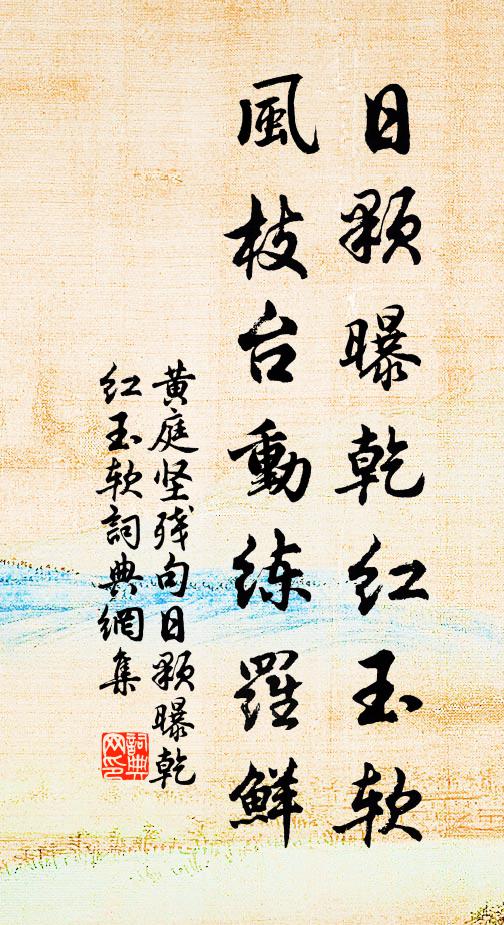 日颗曝乾红玉软
風枝台動练羅鮮
黄庭坚残句日颗曝乾
红玉软詞典網集
詞典
网印